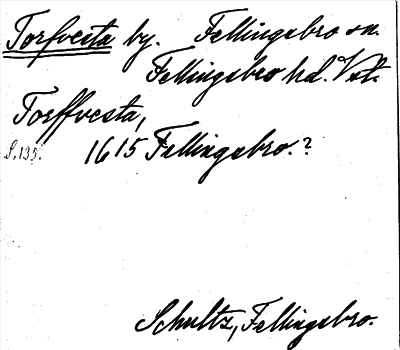 Torfvesta by. Fellingsbro sn.
Fellingsbro hd. Vstl.
Torffvesta,
S. 135. 1615 Fellingsbro.?
Schultz, Fellingsbro.